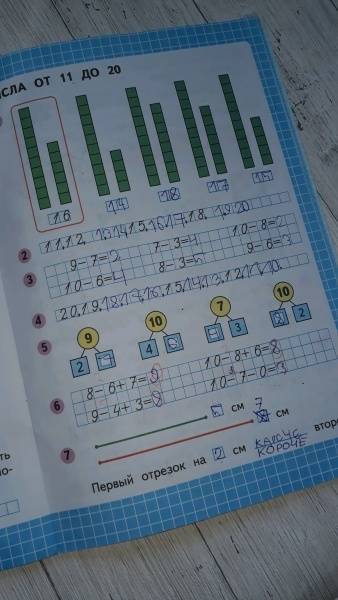 СЛА ОТ 11 ДО 20
16 14 18 17 15
2 11.12. 13.14.15.16.17.18. 19.20
3 9-7=2 7-3=4 10-8=2
10-6=4 8-3= 9-6=3
4 20.19.18.17.16.15.14.13.12.11.10.
5 9 10 7 10
2 4 3 2
6 8-6+7=9 10-8+6=8
9-4+3=8 10-7-0=3
7 см 7 см
Первый отрезок на 2 см КОРОЧЕ второ
КОРОЧЕ